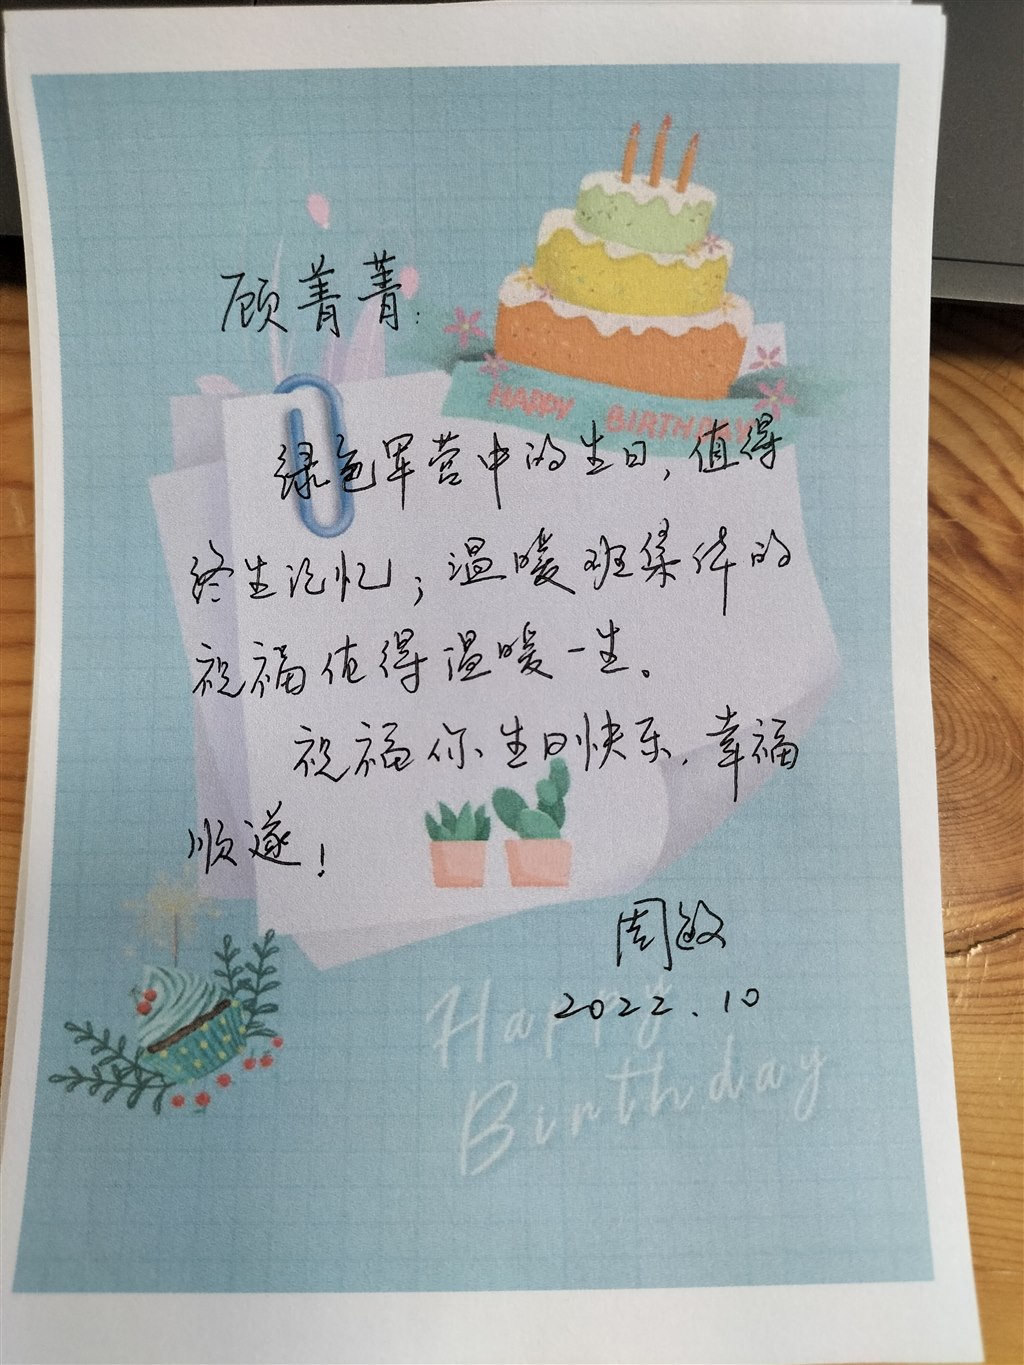 顾菁菁：
HAPPY BIRTHDAY
绿色军营中的生日，值得
终生记忆；温暖班集体的
祝福值得温暖一生。
祝福你生日快乐，幸福
顺遂！
周敏
2022.10
Happy
Birthday